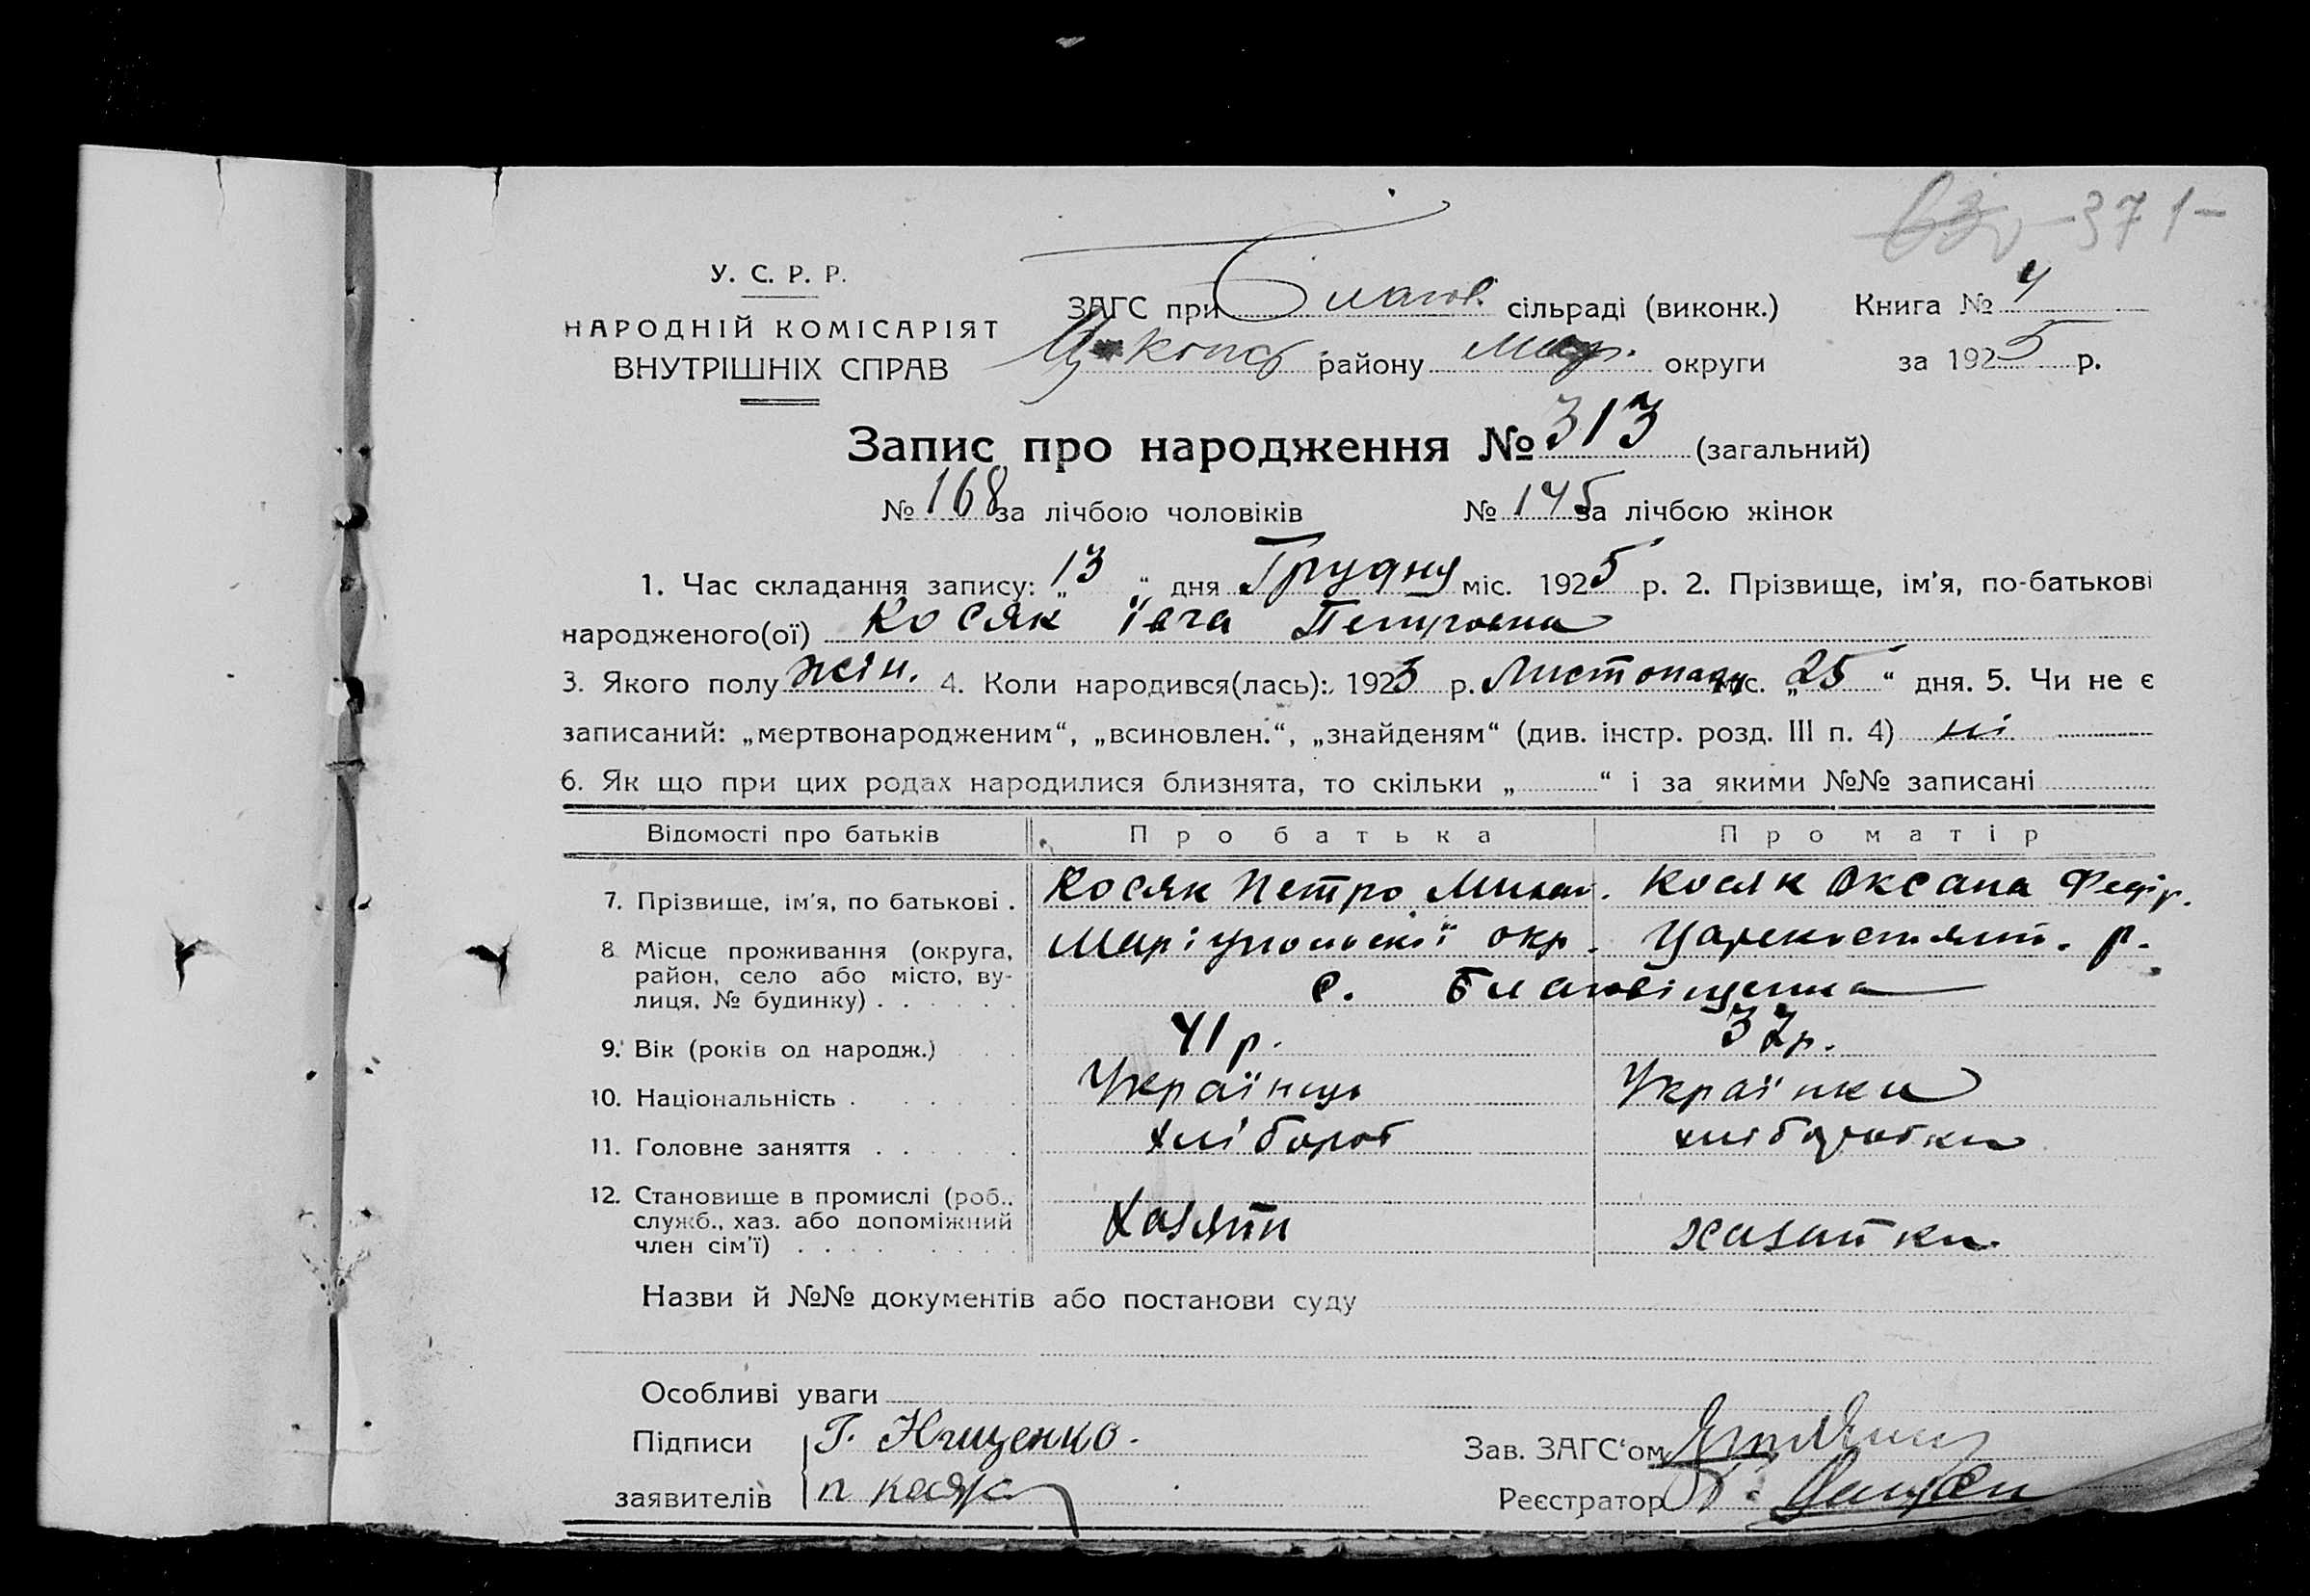 -371-
У. С. Р. Р.
НАРОДНІЙ КОМІСАРІЯТ
ВНУТРІШНІХ СПРАВ
ЗАГС при Благов. сільраді (виконк.) Книга № 4
району Мар. округи за 1925 р.
Запис про народження № 313 (загальний)
№ 168 за лічбою чоловіків № 145 за лічбою жінок
1. Час складання запису: „13“ дня Грудня міс. 1925 р. 2. Прізвище, ім'я, по-батькові
народженого(ої) Косяк Івга Петровна
3. Якого полу жін. 4. Коли народився(лась): 1925 р. Листопаду міс. „25“ дня. 5. Чи не є
записаний: „мертвонародженим“, „всиновлен.“, „знайденям“ (див. інстр. розд. III п. 4) ні
6. Як що при цих родах народилися близнята, то скільки „ “ і за якими №№ записані
Відомості про батьків Про батька Про матір
7. Прізвище, ім'я, по батькові . Косяк Петро Михай. Косяк Оксана Федір.
8. Місце проживання (округа, Маріупольскої окр. Царекостянт. р.
район, село або місто, ву-
лиця, № будинку) . . . . . . с. Благовіщенка
9. Вік (років од народж.) 41 р. 37 р.
10. Національність . Українць Українка
11. Головне заняття . . . . . . хлібороб хліборобка
12. Становище в промислі (роб.,
служб., хаз. або допоміжний Хазяїн хазайка
член сім'ї) . . . .
Назви й №№ документів або постанови суду
Особливі уваги
Підписи Г. Нищенко. Зав. ЗАГС'ом
заявителів П Косяк Реєстратор